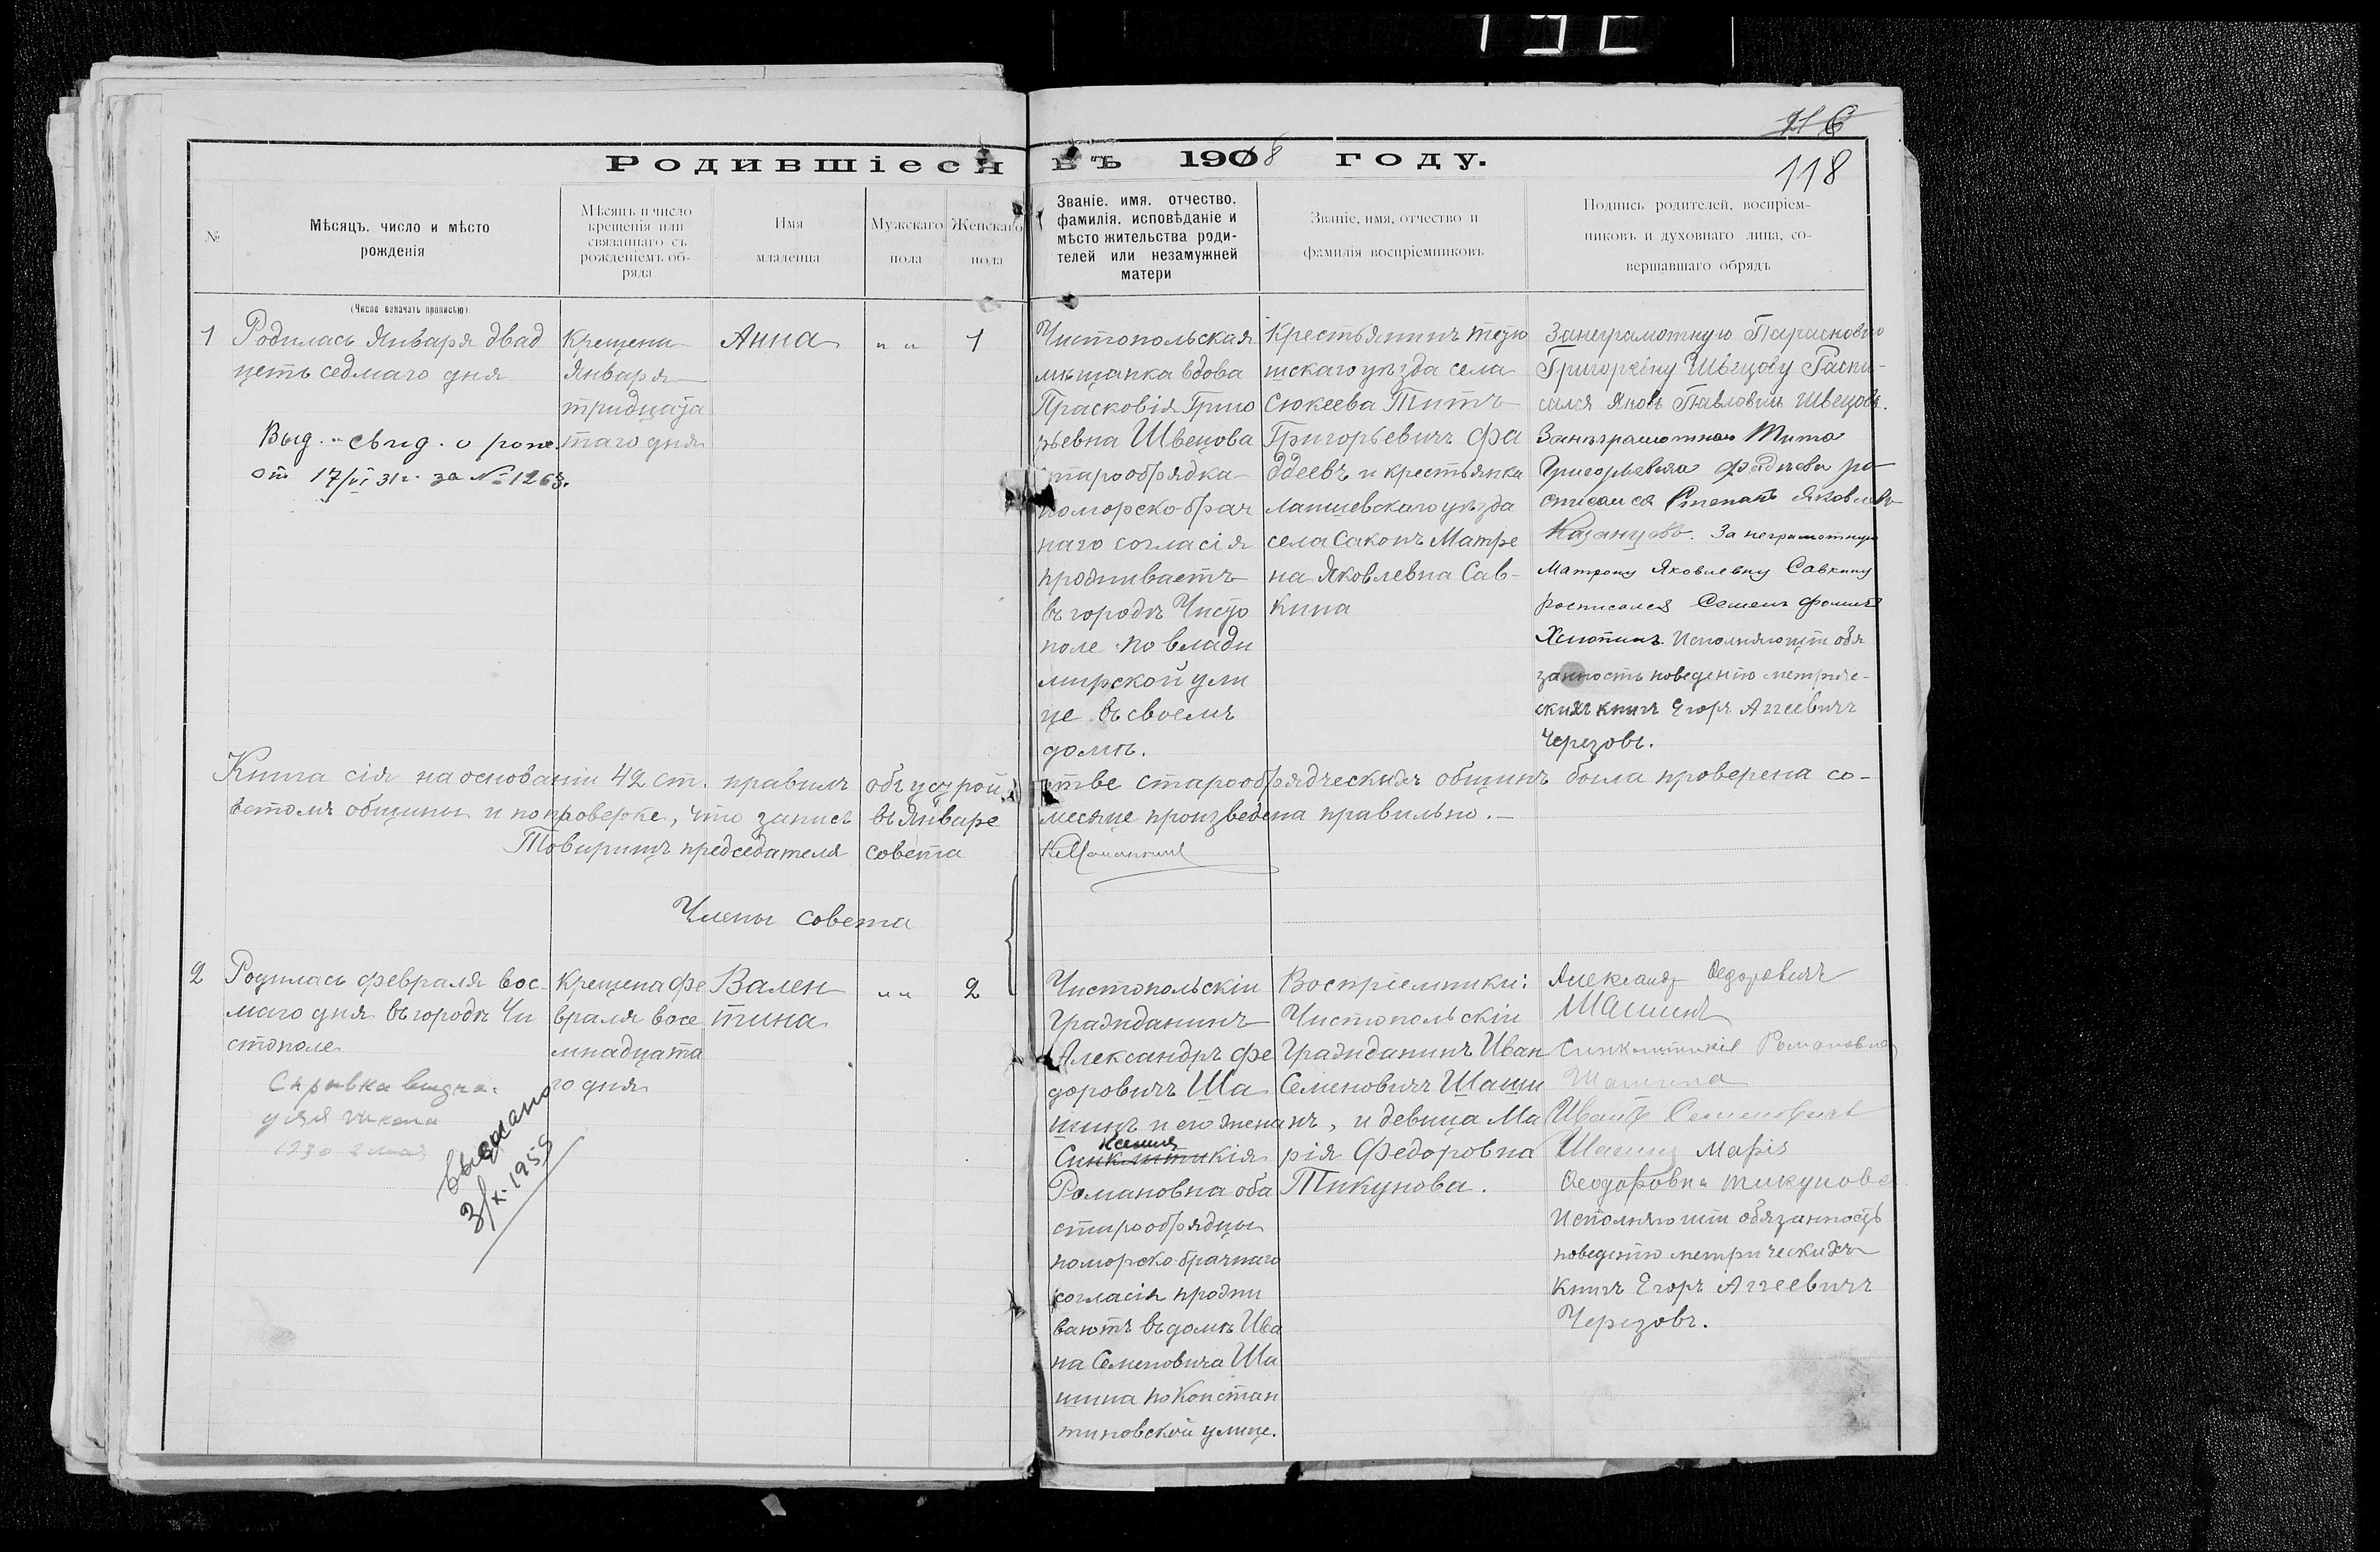 118
Родившіеся въ 1908 году.
№
Мѣсяцъ, число и мѣсто
рожденія
(Число означать прописью)
Мѣсяцъ и число
крещенія или
связаннаго съ
рожденіемъ об-
ряда
Имя
младенца
Мужскаго
пола
Женскаго
пола
Званіе, имя, отчество,
фамилія, исповѣданіе и
мѣсто жительства роди-
телей или незамужней
матери
Званіе, имя, отчество и
фамилія воспріемниковъ
Подпись родителей, воспріем-
никовъ и духовнаго лица, со-
вершавшаго обрядъ
1
Родилась Января двад
цеть седмаго дня
Выд. свид. о рожд.
от 17/VI 31 г. за № 1263.
Крещена
Января
тридцата
таго дня
Анна
" "
1
Чистопольская
мѣщанка вдова
Прасковія Григо
рьевна Швецова
старообрядка
поморско-брач
наго согласія
проживаетъ
въ городѣ Чисто
поле по влади
мирской ули
це въ своемъ
домѣ.
Крестьянинъ тетю
шскаго уѣзда села
Сюкеева Титъ
Григорьевичъ Фа
ддеевъ и крестьянка
лаишевскаго уѣзда
села Саконъ Матре
на Яковлевна Сав-
кина
За неграмотную Парасковью
Григорьевну Швецову Распи-
сался Яковъ Павловичъ Швецовъ.
За неграмотнаго Тита
Григорьевича Фадеева ро
списался Степанъ Яковлевъ
Казанцевъ. За неграмотную
Матрону Яковлевну Савкину
росписался Семенъ Фомичъ
Хлютинъ. Исполняющiй обя
занность поведенію метриче-
скихъ книгъ Егоръ Аггеевичъ
Черезовъ.
Книга сія на основаніи 42 ст. правилъ объ устрой стве старообрядческихъ общинъ была проверена со-
ветомъ общины и по проверке, что запись въ Январе месяце произведена правильно.—
Товарищъ председателя совета
Члены совета
2
Родилась февраля вос-
маго дня въ городѣ Чи
стополе
Справка выдана
для школы
1930 2 мая
выдано
3/X-1959
Крещена фе
враля восе
мнадцата
го дня
Вален
тина
" "
2
Чистопольскіи
гражданинъ
Александръ Фе
доровичъ Ша
шинъ и его жена
Ксения
Синклитикія
Романовна оба
старообрядцы
поморско-брачнаго
согласія прожи
ваютъ въ домѣ Ива
на Семеновича Ша
шина по Констан
тиновской улице.
Воспріемники:
Чистопольскіи
гражданинъ Иван
Семеновичъ Шаши
нъ, и девица Ма
рія Федоровна
Тикунова.
Александр Федоровичъ
Шашинъ
Синклитикія Романовна
Шашина
Иванъ Семеновичъ
Шашинъ Марія
Феодоровна Тикунова
Исполняющiи обязанность
поведенію метрическихъ
книгъ Егоръ Аггеевичъ
Черезовъ.